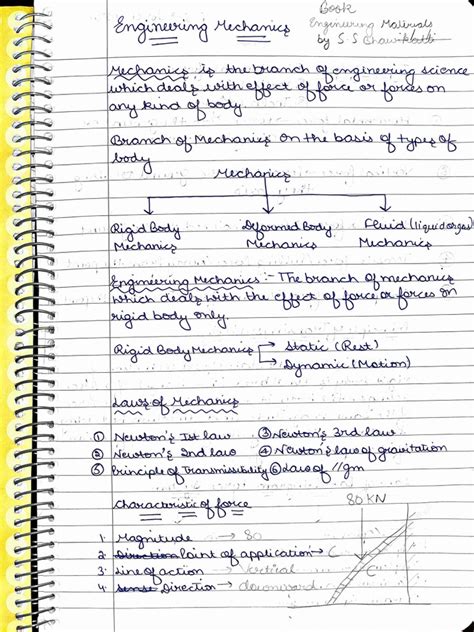 Book
Engineering Mechanics
Engineering Materials
by S S
Mechanics is the branch of engineering science
which deals with effect of force or forces on
any kind of body.
Branch of Mechanics on the basis of types of
body
Mechanics
Rigid Body Deformed Body Fluid (liquid or gas)
Mechanics Mechanics Mechanics
Engineering Mechanics :- The branch of mechanics
which deals with the effect of force or forces on
rigid body only.
Rigid Body Mechanics → Static (Rest)
→ Dynamic (Motion)
Laws of Mechanics
① Newton's Ist law ③ Newton's 3rd law
② Newton's 2nd law ④ Newton's law of gravitation
⑤ Principle of Transmissibility ⑥ Law of //gm
Characteristic of force
80 KN
1. Magnitude → 80
2. Direction Point of application → C
3. Line of action → vertical
4. sense Direction → downward
C